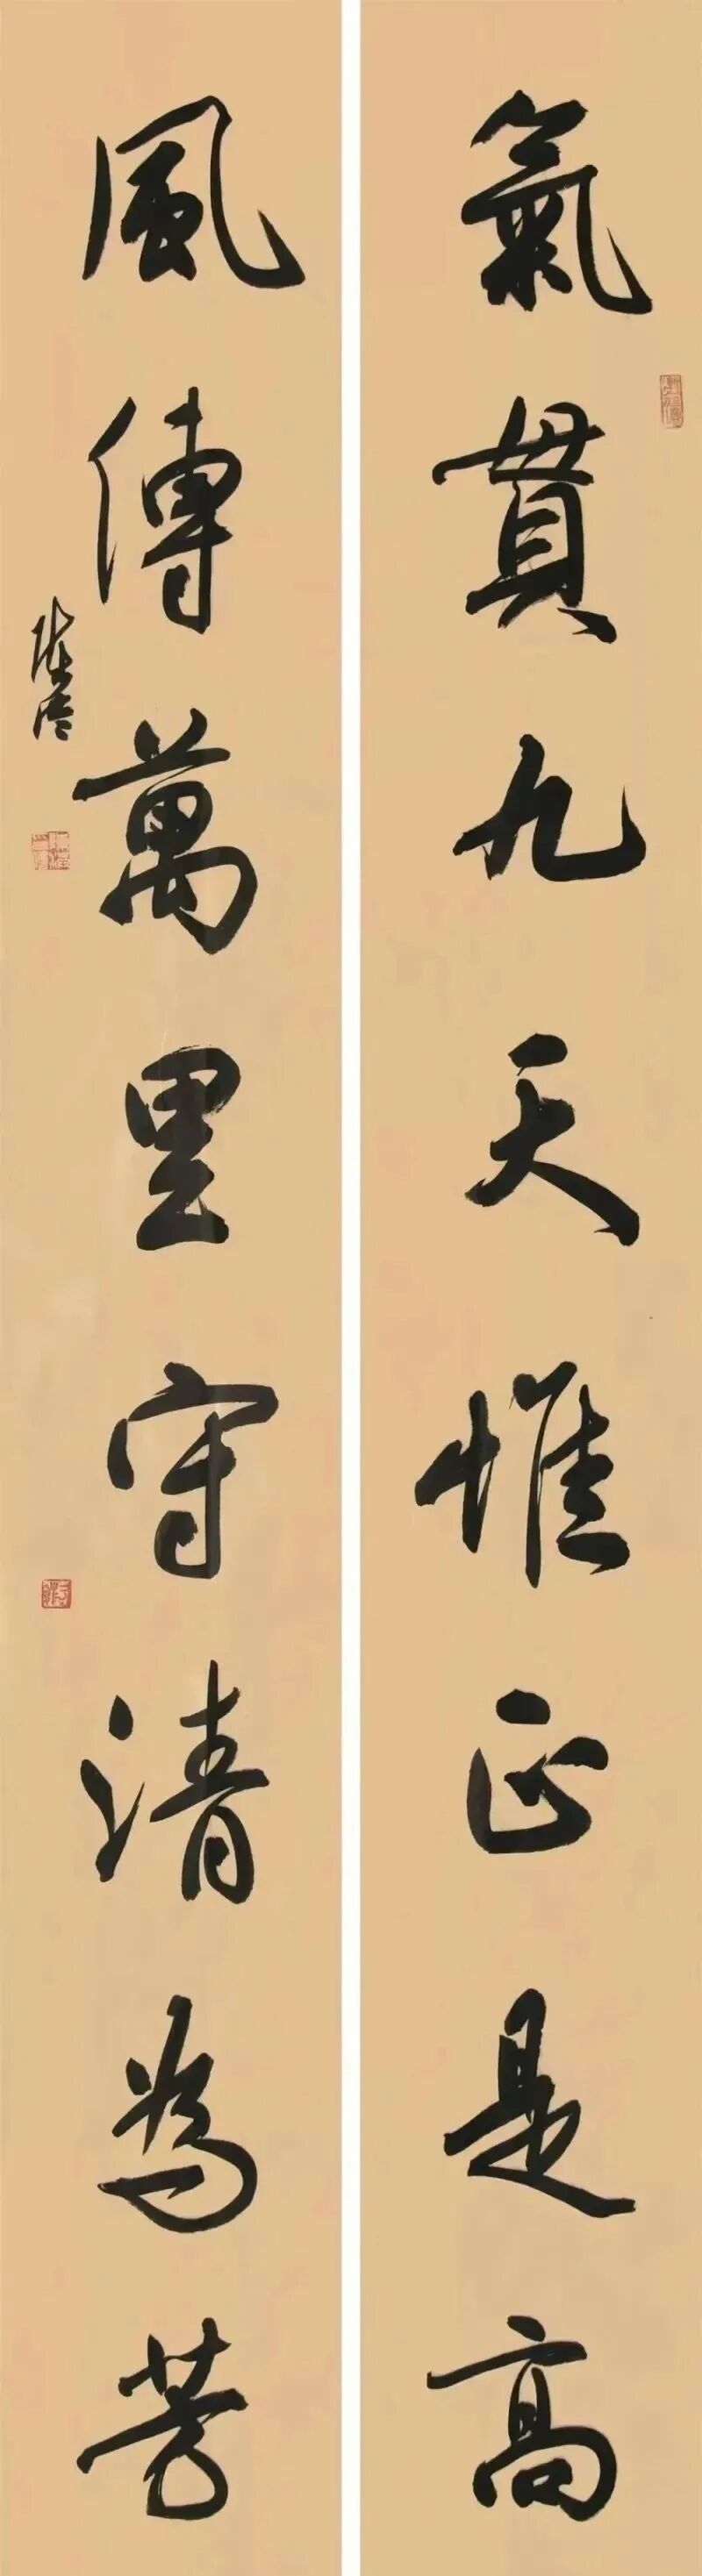 氣貫九天惟正是高
風傳萬里守清為芳